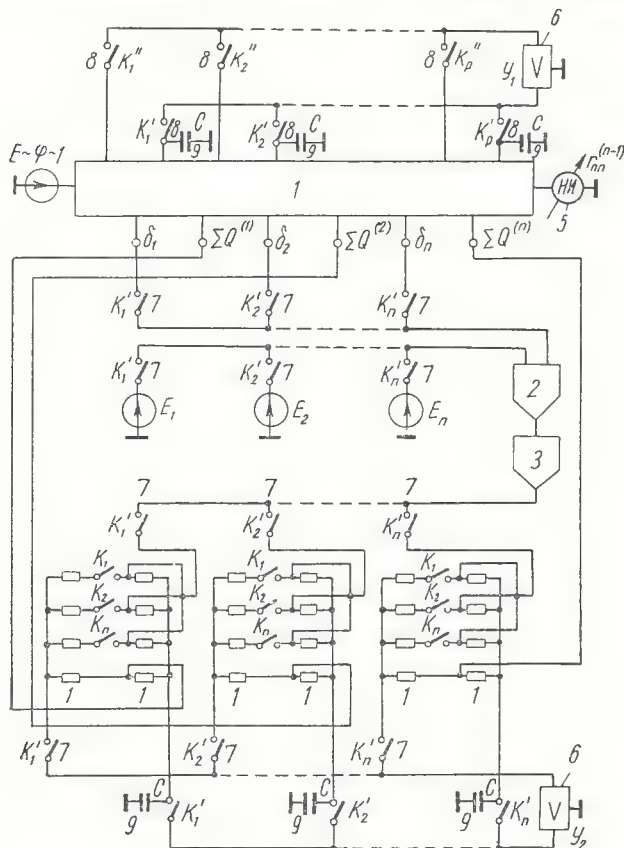 6
8 K₁'' 8 K₂'' 8 Kₚ'' V
У₁
K₁' 8 C K₂' 8 C Kₚ' 8 C
9 9 9
E~φ~1 1 НИ rₙₙ⁽ⁿ⁻¹⁾
5
δ₁ ΣQ⁽¹⁾ δ₂ ΣQ⁽²⁾ δₙ ΣQ⁽ⁿ⁾
K₁' 7 K₂' 7 Kₙ' 7
K₁' 7 K₂' 7 Kₙ' 7 2
E₁ E₂ Eₙ
3
7 7 7
K₁' K₂' Kₙ'
K₁ K₁ K₁
K₂ K₂ K₂
Kₙ Kₙ Kₙ
1 1 1 1 1 1
K₁' 7 K₂' 7 Kₙ' 7
6
C C C V
9 K₁' 9 K₂' 9 Kₙ' У₂